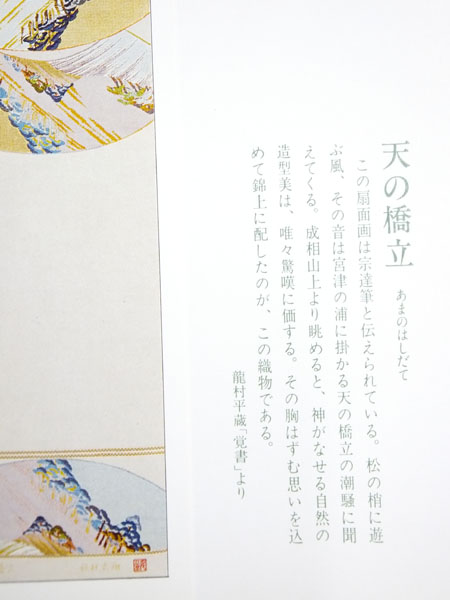 天の橋立 あまのはしだて
この扇面画は宗達筆と伝えられている。松の梢に遊
ぶ風、その音は宮津の浦に掛かる天の橋立の潮騒に聞
えてくる。成相山上より眺めると、神がなせる自然の
造型美は、唯々驚嘆に価する。その胸はずむ思いを込
めて錦上に配したのが、この織物である。
龍村平蔵「覚書」より